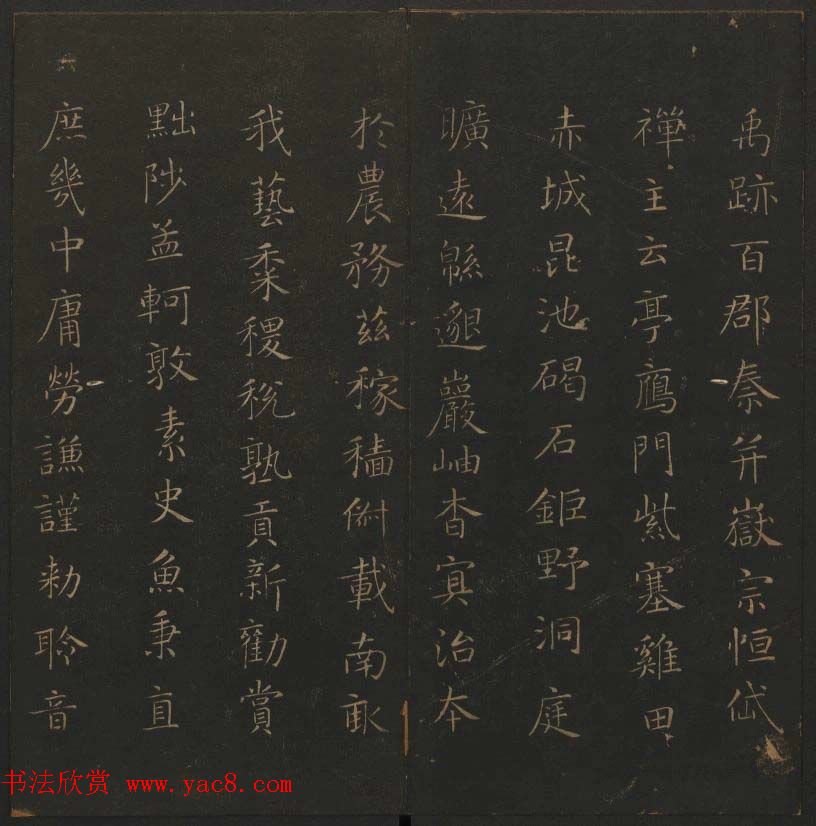 禹跡百郡秦并嶽宗恒岱
禪主云亭鴈門紫塞雞田
赤城昆池碣石鉅野洞庭
曠遠緜邈巖岫杳冥治本
於農務茲稼穡俶載南畝
我藝黍稷稅孰貢新勸賞
黜陟孟軻敦素史魚秉直
庶幾中庸勞謙謹勑聆音
书法欣赏 www.yac8.com